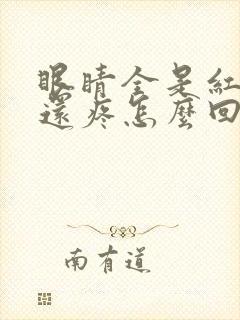 眼睛全是紅
還疼怎麼回
南有道